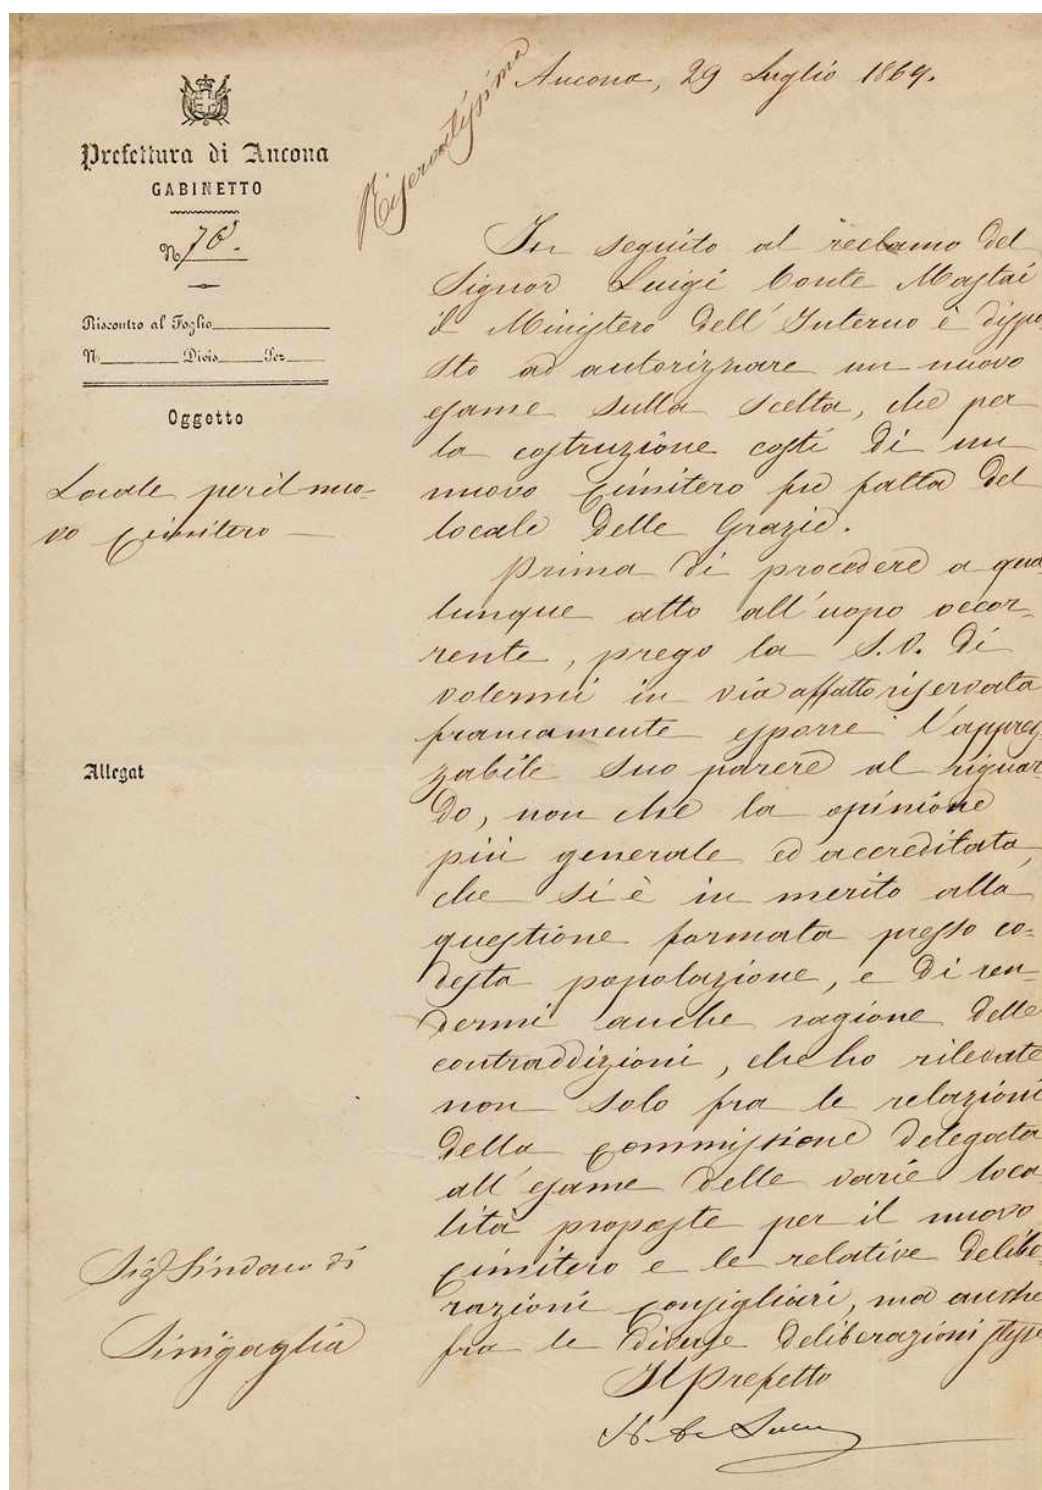 Ancona, 29 Luglio 1869.
Riservatissima
Prefettura di Ancona
GABINETTO
N.
Riscontro al Foglio
N. Divis. Sez.
Oggetto
Locale per il nuo-
vo Cimitero
Allegat
Sig Sindaco di
Sinigaglia
In seguito al reclamo del
Signor Luigi Conte Mastai
il Ministero dell'Interno è dispo
sto ad autorizzare un nuovo
esame sulla scelta, che per
la costruzione costì di un
nuovo Cimitero fu fatta del
locale delle Grazie.
Prima di procedere a qua
lunque atto all'uopo occor-
rente, prego la S.V. di
volermi in via affatto riservata
francamente esporre l'apprez
zabile suo parere al riguar
do, non che la opinione
più generale ed accreditata,
che si è in merito alla
questione formata presso co-
desta popolazione, e di ren-
dermi anche ragione delle
contraddizioni, che ho rilevate
non solo fra le relazioni
della Commissione delegata
all'esame delle varie loca
lità proposte per il nuovo
Cimitero e le relative delibe
razioni Consigliari, ma anche
fra le diverse deliberazioni stesse
Il Prefetto